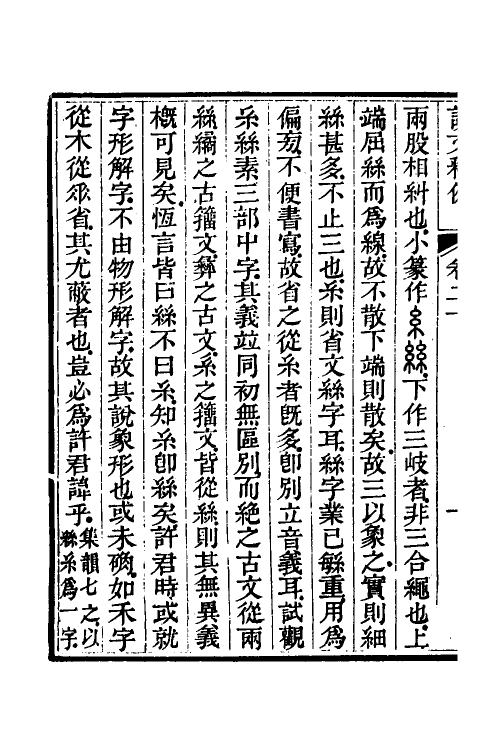 說文釋例 卷二 一
兩股相糾也小篆作糸絲下作三歧者非三合繩也上
端屈絲而爲線故不散下端則散矣故三以象之實則細
絲甚多不止三也糸則省文絲字耳絲字業已緐重用爲
偏㫄不便書寫故省之從糸者旣多卽別立音義耳試觀
糸絲素三部中字其義竝同初無區別而絕之古文從兩
絲繭之古籀文彝之古文系之籀文皆從絲則其無異義
槪可見矣恆言皆曰絲不曰糸知糸卽絲矣許君時或就
字形解字不由物形解字故其說象形也或未礭如禾字
從木從𠂹省其尤蔽者也豈必爲許君諱乎集韻七之以
絲糸爲一字